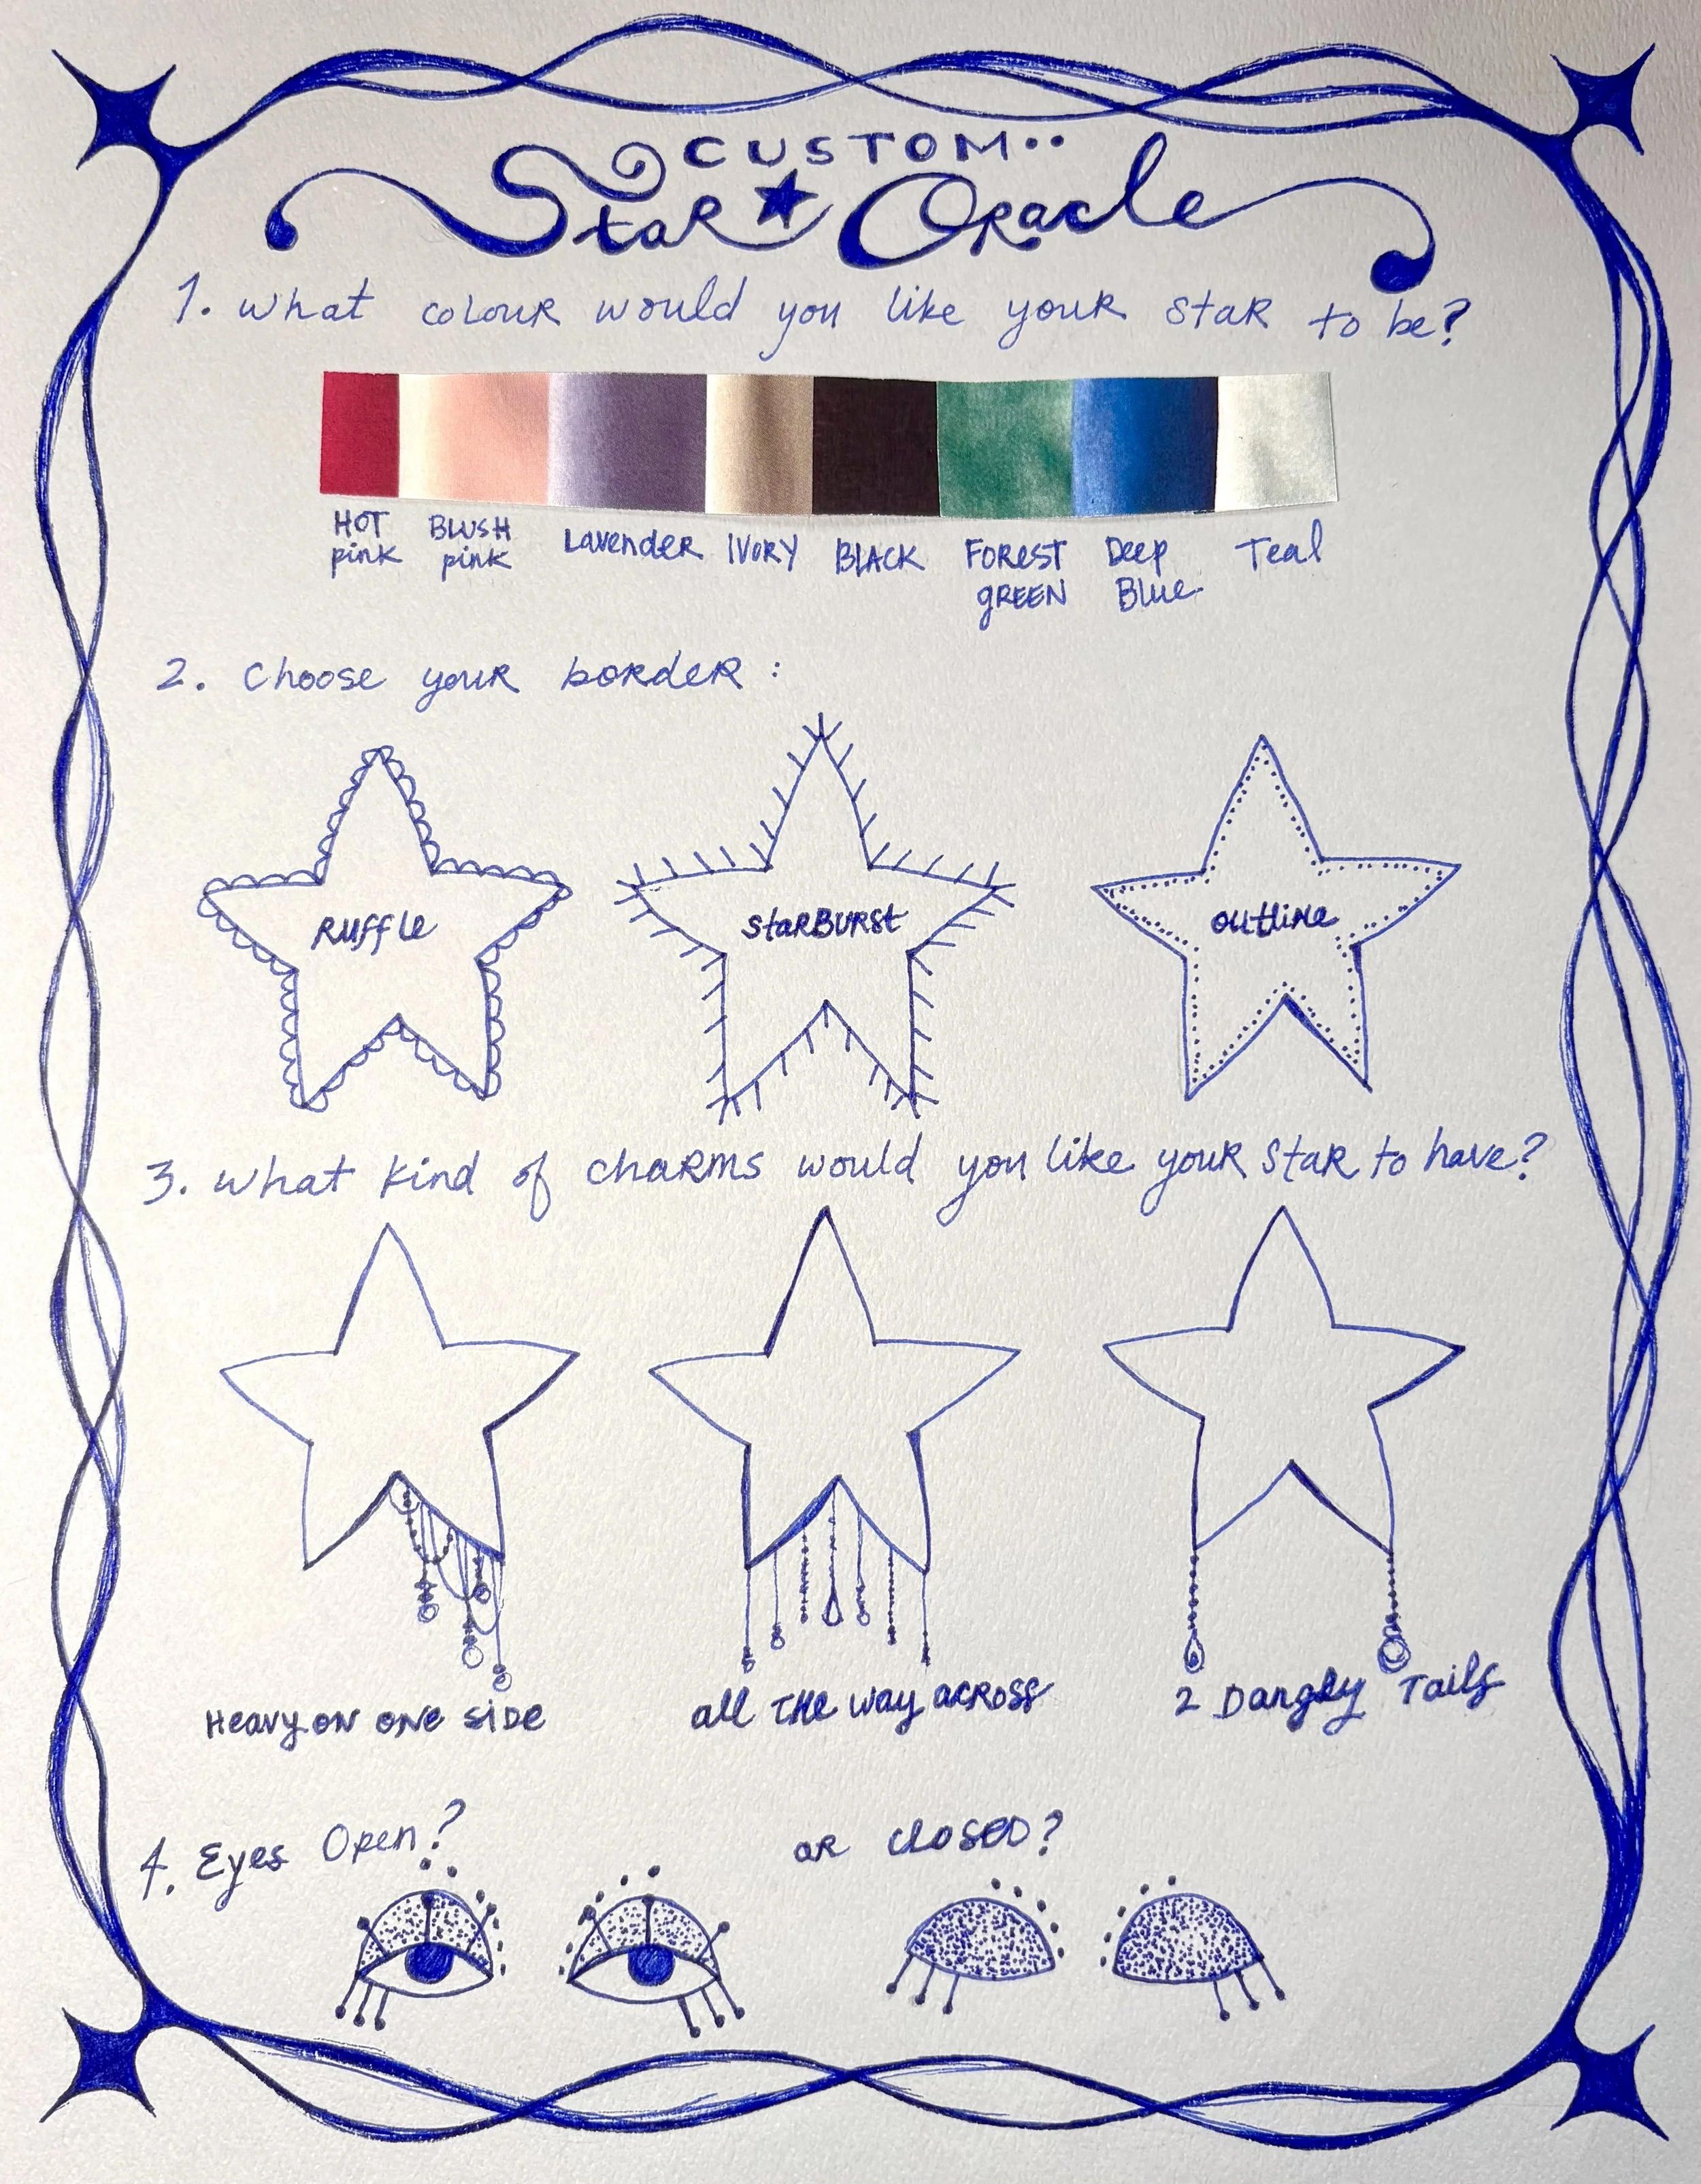 CUSTOM..
Star Oracle
1. What colour would you like your star to be?
HOT pink
BLUSH pink
Lavender
IVORY
BLACK
FOREST gREEN
Deep Blue
Teal
2. Choose your border:
Ruffle
StarBurst
outline
3. What kind of charms would you like your star to have?
Heavy on one side
all the way across
2 Dangly Tails
4. Eyes Open?
or closed?